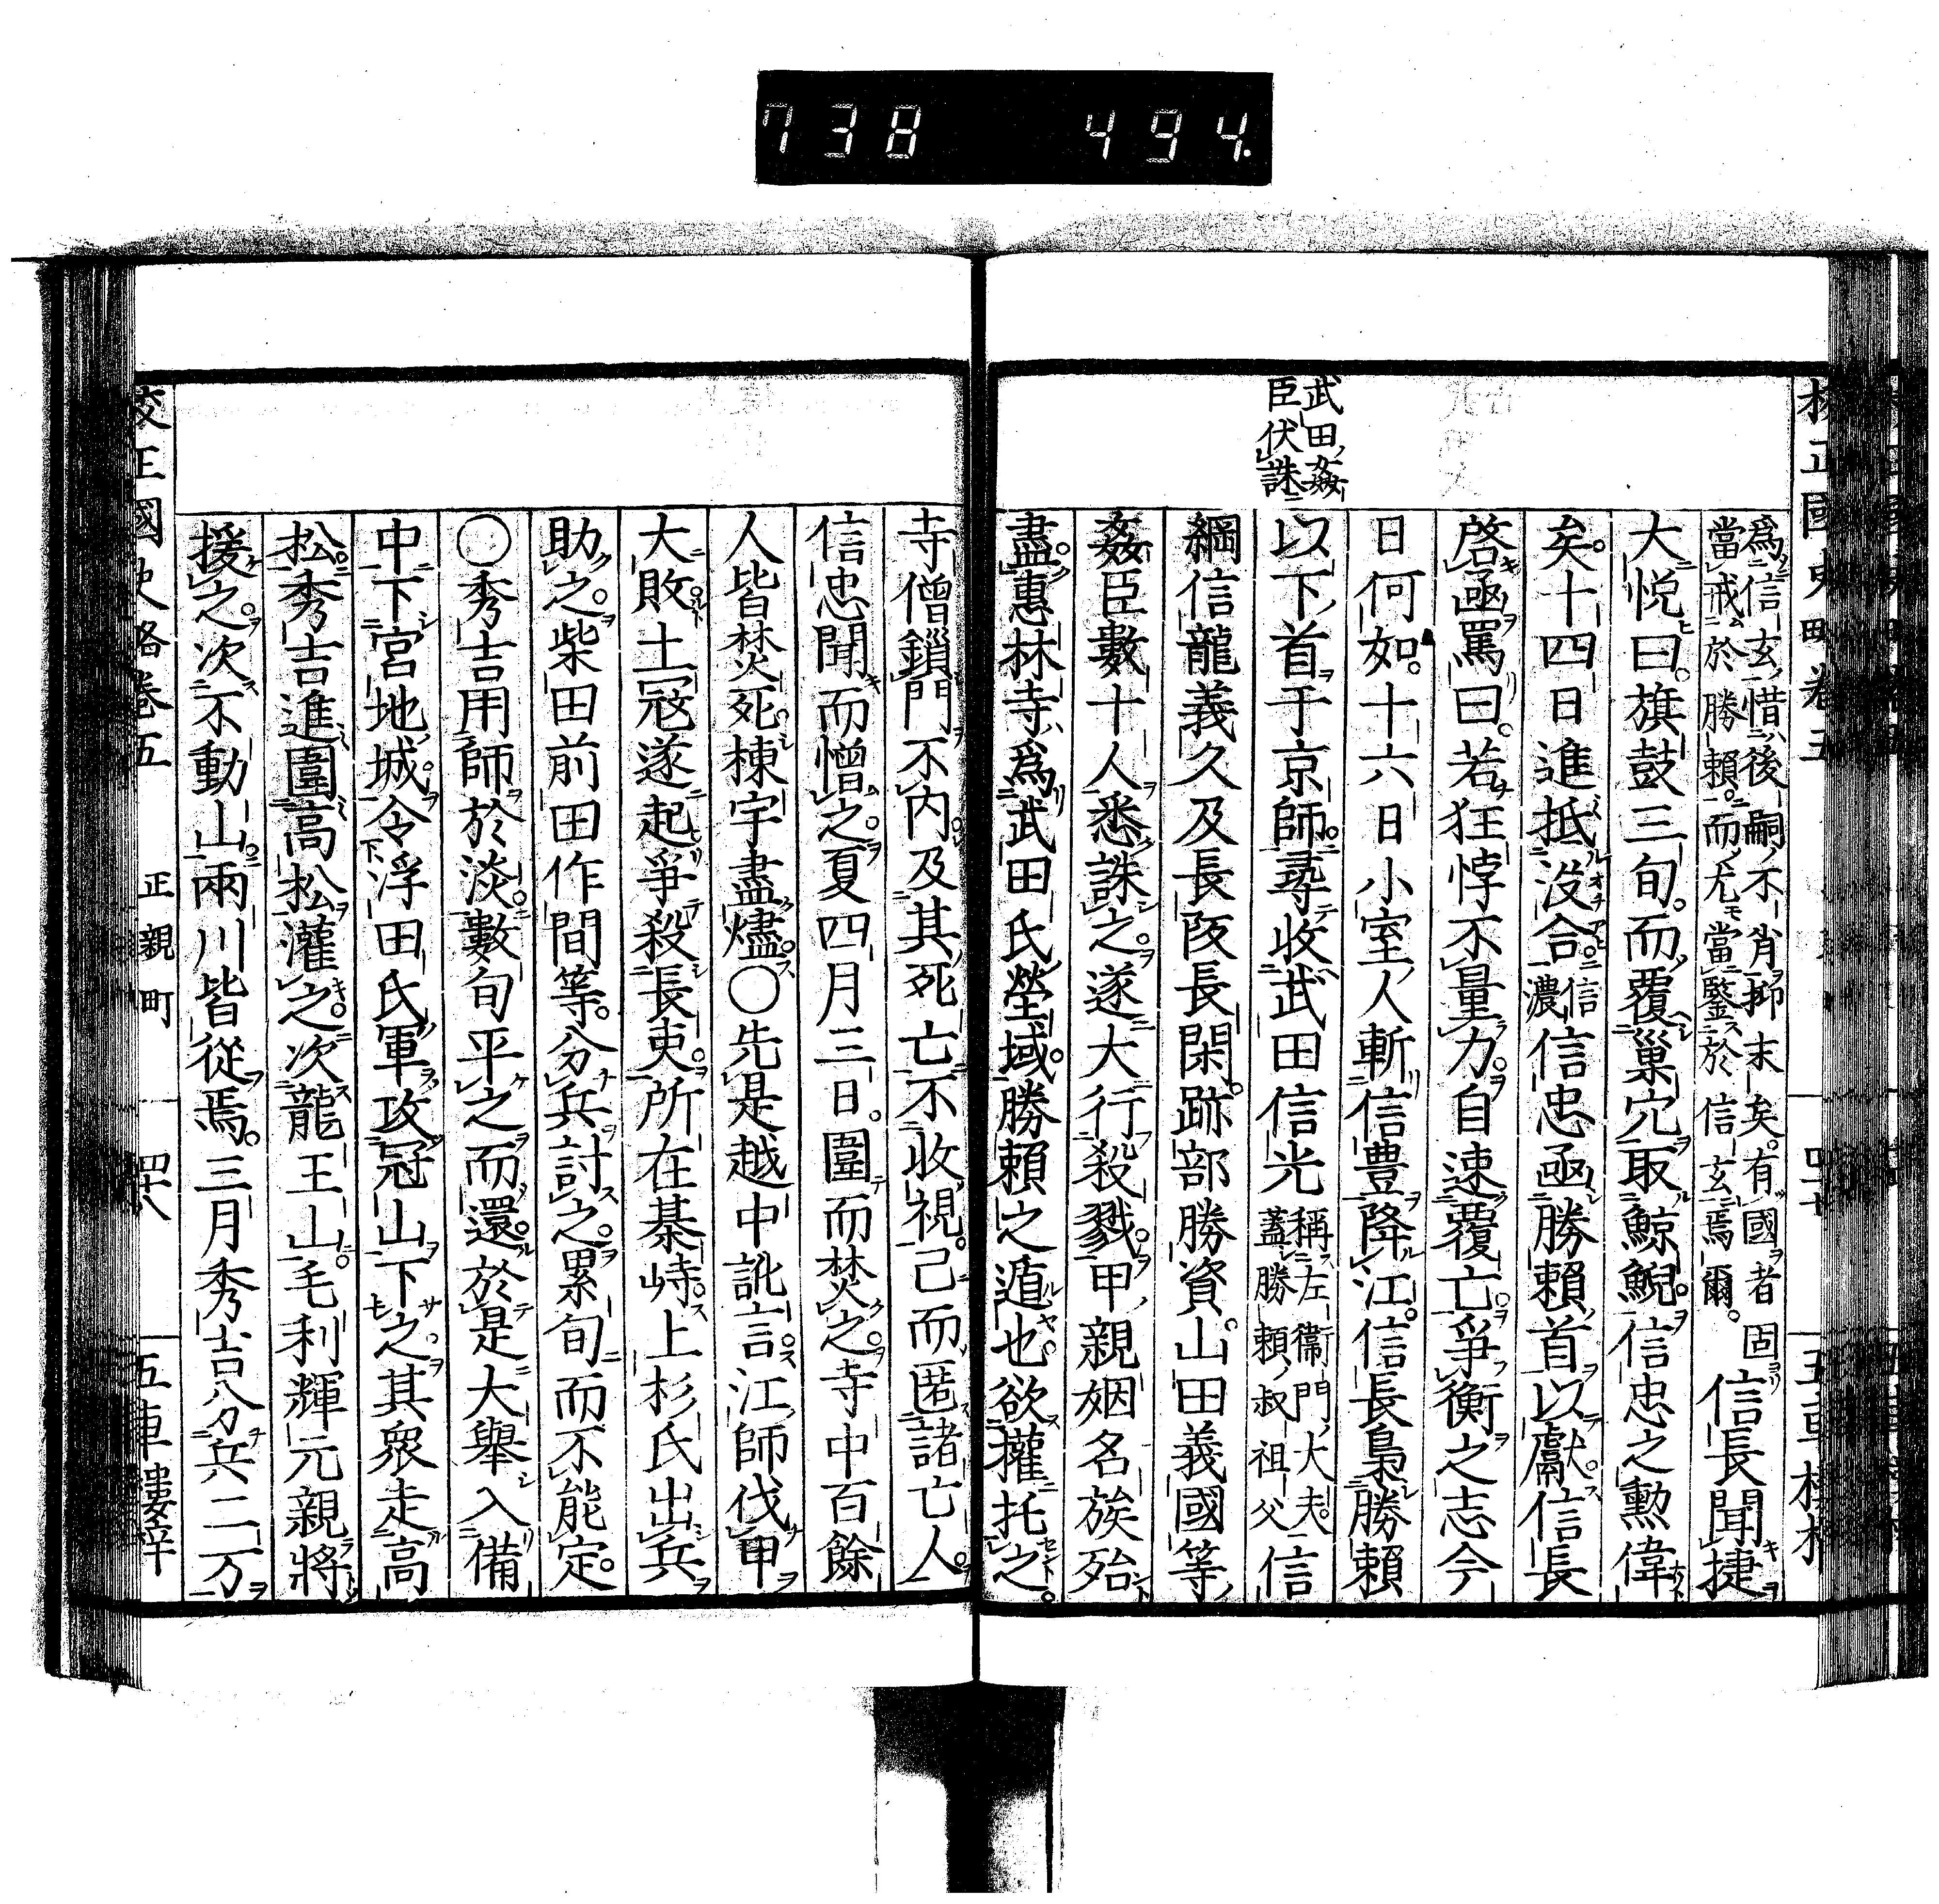 738 494.
武田姦
臣伏誅
爲信玄惜後嗣不肖抑末矣有國者固
當戒於勝賴而尤當鑒於信玄焉爾。信長聞捷
大悅曰旗鼓三旬而覆巢穴取鯨鯢信忠之勲偉
矣十四日進抵没合信濃信忠函勝賴首以獻信長
啓函罵曰若狂悖不量力自速覆亡爭衡之志今
日何如十六日小室人斬信豊降江信長梟勝賴
以下首于京師尋收武田信光稱左衞門大夫蓋勝賴叔祖父信
綱信龍義久及長阪長閑跡部勝資山田義國等
姦臣數十人悉誅之遂大行殺戮甲親姻名族殆
盡惠林寺爲武田氏塋域勝賴之遁也欲攉托之
寺僧鎖門不内及其死亡不收視己而匿諸亡人
信忠聞而憎之夏四月三日圍而焚之寺中百餘
人皆焚死棟宇盡燼〇先是越中訛言江師伐甲
大敗土冦遂起爭殺長吏所在棊峙上杉氏出兵
助之柴田前田作間等分兵討之累旬而不能定
〇秀吉用師於淡數旬平之而還於是大擧入備
中下宮地城令浮田氏軍攻冠山下之其衆走高
松秀吉進圍高松灌之次龍王山毛利輝元親將
援之次不動山兩川皆從焉三月秀吉分兵二万
校正國史略卷五 正親町 四十八 五車樓梓